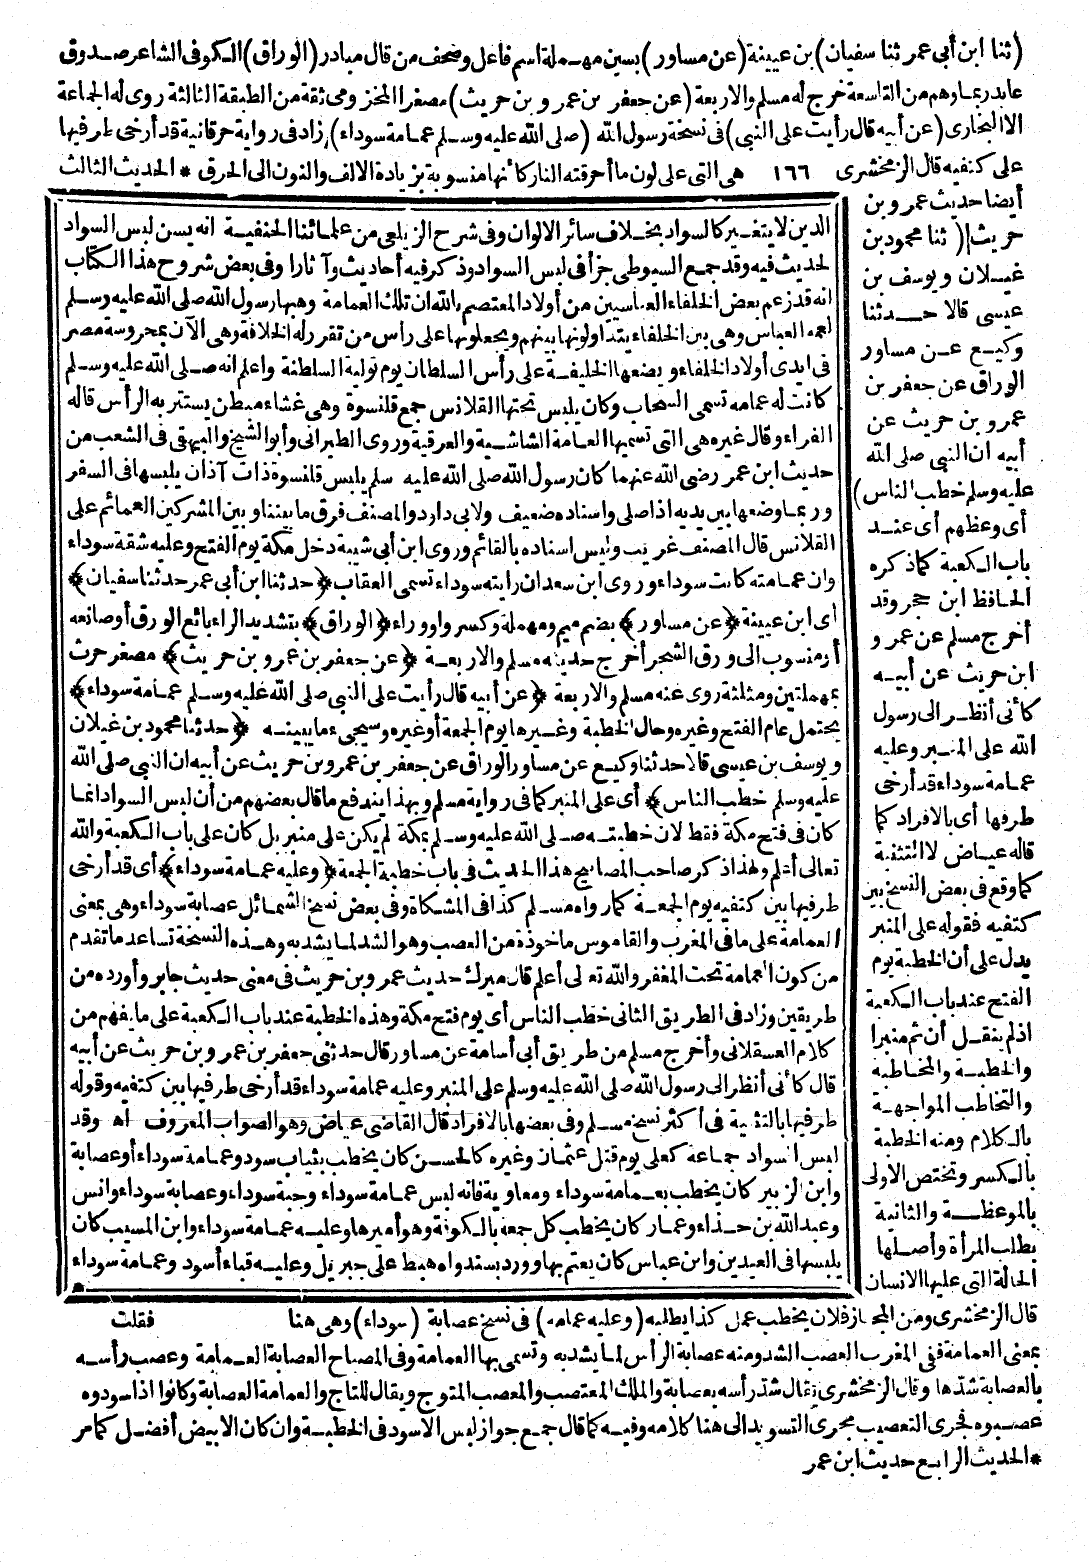 (ثنا ابن أبى عمر ثنا سفيان) بن عيينة (عن مساور) بسين مهملة اسم فاعل وصحف من قال مبادر (الوراق) الكوفى الشاعر صدوق
عابد ربما وهم من التاسعة خرج له مسلم والاربعة (عن جعفر بن عمرو بن حريث) مصغرا المخزومى ثقة من الطبقة الثالثة روى له الجماعة
الا البخارى (عن أبيه قال رأيت على النبى) فى نسخة رسول الله (صلى الله عليه وسلم عمامة سوداء) زاد فى رواية حرقانية قد أرخى طرفيها
على كتفيه قال الزمخشرى ١٦٦ هى التى على لون ما أحرقته النار كأنها منسوبة بزيادة الالف والنون الى الحرق * الحديث الثالث
أيضا حديث عمرو بن
حريث (ثنا محمود بن
غيلان ويوسف بن
عيسى قالا حدثنا
وكيع عن مساور
الوراق عن جعفر بن
عمرو بن حريث عن
أبيه ان النبى صلى الله
عليه وسلم خطب الناس)
أى وعظهم أى عند
باب الكعبة كما ذكره
الحافظ ابن حجر وقد
أخرج مسلم عن عمرو
ابن حريث عن أبيه
كأنى أنظر الى رسول
الله على المنبر وعليه
عمامة سوداء قد أرخى
طرفها أى بالافراد كما
قاله عياض لا التثنية
كما وقع فى بعض النسخ بين
كتفيه فقوله على المنبر
يدل على أن الخطبة يوم
الفتح عند باب الكعبة
اذ لم ينقل أن ثم منبرا
والخطبة والمخاطبة
والتخاطب المواجهة
بالكلام ومنه الخطبة
بالكسر وتختص الاولى
بالموعظة والثانية
بطلب المرأة وأصلها
الحالة التى عليها الانسان
الذين لا يتغير كالسواد بخلاف سائر الالوان وفى شرح الزيلعى من علمائنا الحنفية انه يسن لبس السواد
لحديث فيه وقد جمع السيوطى جزأ فى لبس السواد وذكر فيه أحاديث وآثارا وفى بعض شروح هذا الكتاب
انه قد زعم بعض الخلفاء العباسيين من أولاد المعتصم بالله ان تلك العمامة وهبها رسول الله صلى الله عليه وسلم
لعمه العباس وهى بين الخلفاء يتداولونها بينهم ويجعلونها على رأس من تقرر له الخلافة وهى الآن بمحروسة مصر
فى ايدى أولاد الخلفاء ويضعها الخليفة على رأس السلطان يوم تولية السلطنة واعلم انه صلى الله عليه وسلم
كانت له عمامه تسمى السحاب وكان يلبس تحتها القلانس جمع قلنسوة وهى غشاء مبطن يستتر به الرأس قاله
الفراء وقال غيره هى التى تسميها العامة الشاشية والعرقية وروى الطبرانى وأبو الشيخ والبيهقى فى الشعب من
حديث ابن عمر رضى الله عنهما كان رسول الله صلى الله عليه سلم يلبس قلنسوة ذات آذان يلبسها فى السفر
وربما وضعها بين يديه اذا صلى واسناده ضعيف ولابى داود والمصنف فرق ما بيننا وبين المشركين العمائم على
القلانس قال المصنف غريب وليس اسناده بالقائم وروى ابن أبى شيبة دخل مكة يوم الفتح وعليه شقة سوداء
وان عمامته كانت سوداء وروى ابن سعد ان رايته سوداء تسمى العقاب ﴿حدثنا ابن أبى عمر حدثنا سفيان﴾
أى ابن عيينة ﴿عن مساور﴾ بضم ميم ومهملة وكسر واو وراء ﴿الوراق﴾ بتشديد الراء بائع الورق أو صانعه
أو منسوب الى ورق الشجر أخرج حديثه مسلم والاربعة ﴿عن جعفر بن عمرو بن حريث﴾ مصغر حرث
بمهملتين ومثلثة روى عنه مسلم والاربعة ﴿عن أبيه قال رأيت على النبى صلى الله عليه وسلم عمامة سوداء﴾
يحتمل عام الفتح وغيره وحال الخطبة وغيرها يوم الجمعة أو غيره وسيجىء ما يبينه ﴿حدثنا محمود بن غيلان
ويوسف بن عيسى قالا حدثنا وكيع عن مساور الوراق عن جعفر بن عمرو بن حريث عن أبيه ان النبى صلى الله
عليه وسلم خطب الناس﴾ أى على المنبر كما فى رواية مسلم وبهذا يندفع ما قال بعضهم من أن لبس السواد انما
كان فى فتح مكة فقط لان خطبته صلى الله عليه وسلم بمكة لم يكن على منبر بل كان على باب الكعبة والله
تعالى أعلم ولهذا ذكر صاحب المصابيح هذا الحديث فى باب خطبة الجمعة ﴿وعليه عمامة سوداء﴾ أى قد أرخى
طرفيها بين كتفيه يوم الجمعة كما رواه مسلم كذا فى المشكاة وفى بعض نسخ الشمائل عصابة سوداء وهى بمعنى
العمامة على ما فى المغرب والقاموس مأخوذة من العصب وهو الشد لما يشد به وهذه النسخة تساعد ما تقدم
من كون العمامة تحت المغفر والله تعالى أعلم قال ميرك حديث عمرو بن حريث فى معنى حديث جابر وأورده من
طريقين وزاد فى الطريق الثانى خطب الناس أى يوم فتح مكة وهذه الخطبة عند باب الكعبة على ما يفهم من
كلام العسقلانى وأخرج مسلم من طريق أبى أسامة عن مساور قال حدثنى جعفر بن عمرو بن حريث عن أبيه
قال كأنى أنظر الى رسول الله صلى الله عليه وسلم على المنبر وعليه عمامة سوداء قد أرخى طرفيها بين كتفيه وقوله
طرفيها بالتثنية فى أكثر نسخ مسلم وفى بعضها بالافراد قال القاضى عياض وهو الصواب المعروف اه وقد
لبس السواد جماعة كعلى يوم قتل عثمان وغيره كالحسن كان يخطب بثياب سود وعمامة سوداء أو عصابة
وابن الزبير كان يخطب بعمامة سوداء ومعاوية فانه لبس عمامة سوداء وجبة سوداء وعصابة سوداء وانس
وعبد الله بن جذاء وعمار كان يخطب كل جمعة بالكوفة وهو أميرها وعليه عمامة سوداء وابن المسيب كان
يلبسها فى العيدين وابن عباس كان يعتم بها وورد بسند واه هبط على جبريل وعليه قباء أسود وعمامة سوداء
قال الزمخشرى ومن المجاز فلان يخطب عمل كذا يطلبه (وعليه عمامه) فى نسخ عصابة (سوداء) وهى هنا فقلت
بمعنى العمامة ففى المغرب العصب الشد ومنه عصابة الرأس لما يشد به وتسمى بها العمامة وفى المصباح العصابة العمامة وعصب رأسه
بالعصابة شدّها وقال الزمخشرى يقال شد رأسه بعصابة والملك المعتصب والمعصب المتوج ويقال للتاج والعمامة العصابة وكانوا اذا سودوه
عصبوه فجرى التعصيب مجرى التسويد الى هنا كلامه وفيه كما قال جمع جواز لبس الاسود فى الخطبة وان كان الابيض أفضل كما مر
* الحديث الرابع حديث ابن عمر